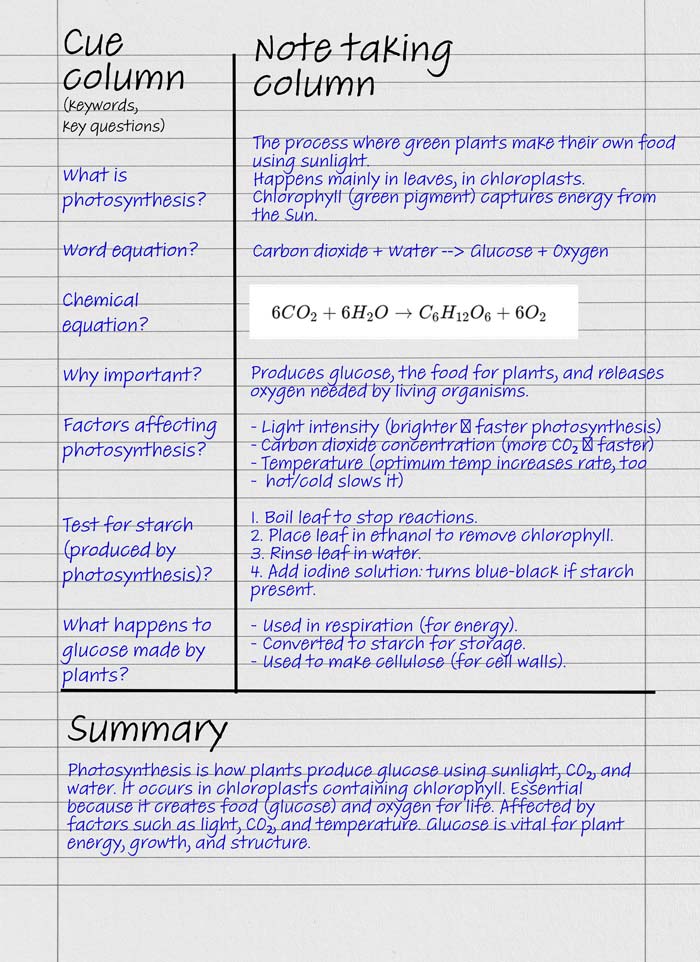 Cue
column
(keywords,
key questions)
Note taking
column
What is
photosynthesis?
The process where green plants make their own food
using sunlight.
Happens mainly in leaves, in chloroplasts.
Chlorophyll (green pigment) captures energy from
the Sun.
Word equation?
Carbon dioxide + Water --> Glucose + Oxygen
Chemical
equation?
6CO₂ + 6H₂O → C₆H₁₂O₆ + 6O₂
Why important?
Produces glucose, the food for plants, and releases
oxygen needed by living organisms.
Factors affecting
photosynthesis?
- Light intensity (brighter  faster photosynthesis)
- Carbon dioxide concentration (more CO₂  faster)
- Temperature (optimum temp increases rate, too
- hot/cold slows it)
Test for starch
(produced by
photosynthesis)?
1. Boil leaf to stop reactions.
2. Place leaf in ethanol to remove chlorophyll.
3. Rinse leaf in water.
4. Add iodine solution: turns blue-black if starch
present.
What happens to
glucose made by
plants?
- Used in respiration (for energy).
- Converted to starch for storage.
- Used to make cellulose (for cell walls).
Summary
Photosynthesis is how plants produce glucose using sunlight, CO₂, and
water. It occurs in chloroplasts containing chlorophyll. Essential
because it creates food (glucose) and oxygen for life. Affected by
factors such as light, CO₂, and temperature. Glucose is vital for plant
energy, growth, and structure.